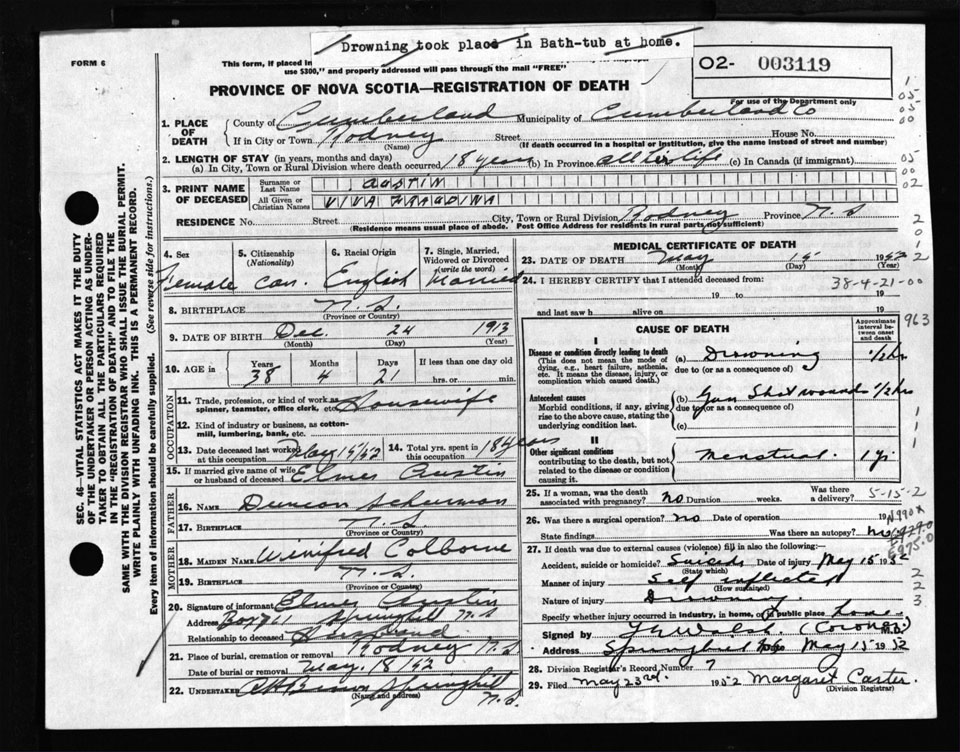 Drowning took place in Bath-tub at home.
FORM 6
This form, if placed in
use $300," and properly addressed will pass through the mail "FREE"
O2- 003119
For use of the Department only
PROVINCE OF NOVA SCOTIA—REGISTRATION OF DEATH
1. PLACE OF DEATH
County of Cumberland Municipality of Cumberland Co
If in City or Town Rodney Street House No.
(Name) (If death occurred in a hospital or institution, give the name instead of street and number)
2. LENGTH OF STAY (in years, months and days)
(a) In City, Town or Rural Division where death occurred 18 years (b) In Province all her life (c) In Canada (if immigrant)
3. PRINT NAME OF DECEASED
Surname or Last Name AUSTIN
All Given or Christian Names VIVA
RESIDENCE No. Street City, Town or Rural Division Rodney Province N.S
(Residence means usual place of abode. Post Office Address for residents in rural parts not sufficient)
4. Sex
Female
5. Citizenship
(Nationality)
Can.
6. Racial Origin
English
7. Single, Married, Widowed or Divorced
(write the word)
Married
8. BIRTHPLACE N.S.
(Province or Country)
9. DATE OF BIRTH Dec. 24 1913
(Month) (Day) (Year)
10. AGE in
Years Months Days If less than one day old
38 4 21 hrs. or min.
OCCUPATION
11. Trade, profession, or kind of work as spinner, teamster, office clerk, etc. Housewife
12. Kind of industry or business, as cotton-mill, lumbering, bank, etc.
13. Date deceased last worked May 15/52
14. Total yrs. spent in this occupation 18 years
15. If married give name of wife or husband of deceased Elmer Austin
FATHER
16. NAME Duncan
17. BIRTHPLACE N.S.
(Province or Country)
MOTHER
18. MAIDEN NAME Winifred Colborne
19. BIRTHPLACE N.S.
(Province or Country)
20. Signature of informant Elmer Austin
Address Box 761 Springhill N.S
Relationship to deceased Husband
21. Place of burial, cremation or removal Rodney N.S
Date of burial or removal May. 18/52
22. UNDERTAKER Brown Springhill N.S.
(Name and address)
MEDICAL CERTIFICATE OF DEATH
23. DATE OF DEATH May 15 1952
(Month) (Day) (Year)
24. I HEREBY CERTIFY that I attended deceased from:
38-4-21-00
19 to 19
and last saw h alive on 19
CAUSE OF DEATH
Approximate interval between onset and death
963
I
Disease or condition directly leading to death
(This does not mean the mode of dying, e.g., heart failure, asthenia, etc. It means the disease, injury, or complication which caused death.)
(a) Drowning 1/2 hr
due to (or as a consequence of)
Antecedent causes
Morbid conditions, if any, giving rise to the above cause, stating the underlying condition last.
(b) Gun Shot wounds 1/2 hrs
due to (or as a consequence of)
(c)
II
Other significant conditions
contributing to the death, but not related to the disease or condition causing it.
Menstrual 1 yr.
25. If a woman, was the death associated with pregnancy? no Duration weeks. Was there a delivery?
5-15-2
26. Was there a surgical operation? no Date of operation 19
State findings Was there an autopsy? no
N990X
E929.0
E975.0
27. If death was due to external causes (violence) fill in also the following:—
Accident, suicide or homicide? Suicide Date of injury May 15 1952
(State which)
Manner of injury Self inflicted
(How sustained)
Nature of injury Drowning
Specify whether injury occurred in industry, in home, or in public place home
Signed by (Coroner)
Address Springhill May 15 1952
28. Division Registrar's Record Number 7
29. Filed May 23rd. 1952 Margaret Carter
(Division Registrar)
SEC. 46—VITAL STATISTICS ACT MAKES IT THE DUTY
OF THE UNDERTAKER OR PERSON ACTING AS UNDER-
TAKER TO OBTAIN ALL THE PARTICULARS REQUIRED
IN THE "REGISTRATION OF DEATH" AND TO FILE THE
SAME WITH THE DIVISION REGISTRAR WHO SHALL ISSUE THE BURIAL PERMIT.
WRITE PLAINLY WITH UNFADING INK. THIS IS A PERMANENT RECORD.
Every item of information should be carefully supplied. (See reverse side for instructions.)